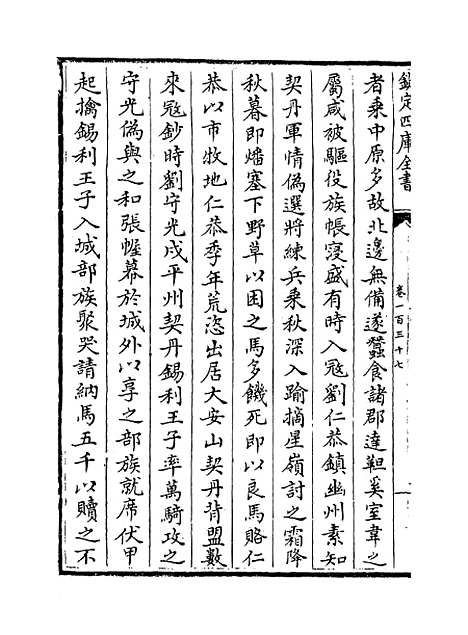 欽定四庫全書
卷一百三十七
者乘中原多故北邊無備遂蠶食諸郡達靼奚室韋之
屬咸被驅役族帳寖盛有時入寇劉仁恭鎮幽州素知
契丹軍情偽選將練兵乘秋深入踰摘星嶺討之霜降
秋暮即燔塞下野草以困之馬多饑死即以良馬賂仁
恭以市牧地仁恭季年荒恣出居大安山契丹背盟數
來寇鈔時劉守光戍平州契丹錫利王子率萬騎攻之
守光偽與之和張幄幕於城外以享之部族就席伏甲
起擒錫利王子入城部族聚哭請納馬五千以贖之不